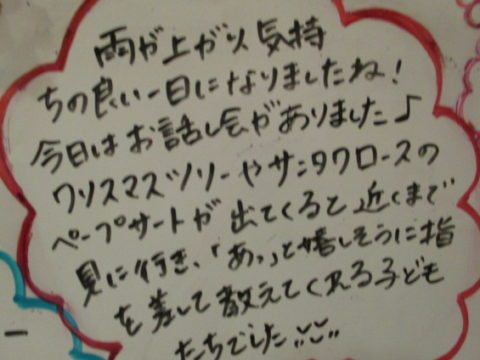 雨が上がり気持
ちの良い一日になりましたね!
今日はお話し会がありました♪
クリスマスツリーやサンタクロースの
ペープサートが出てくると近くまで
見に行き、「あっ」と嬉しそうに指
を差して教えてくれる子ども
たちでした